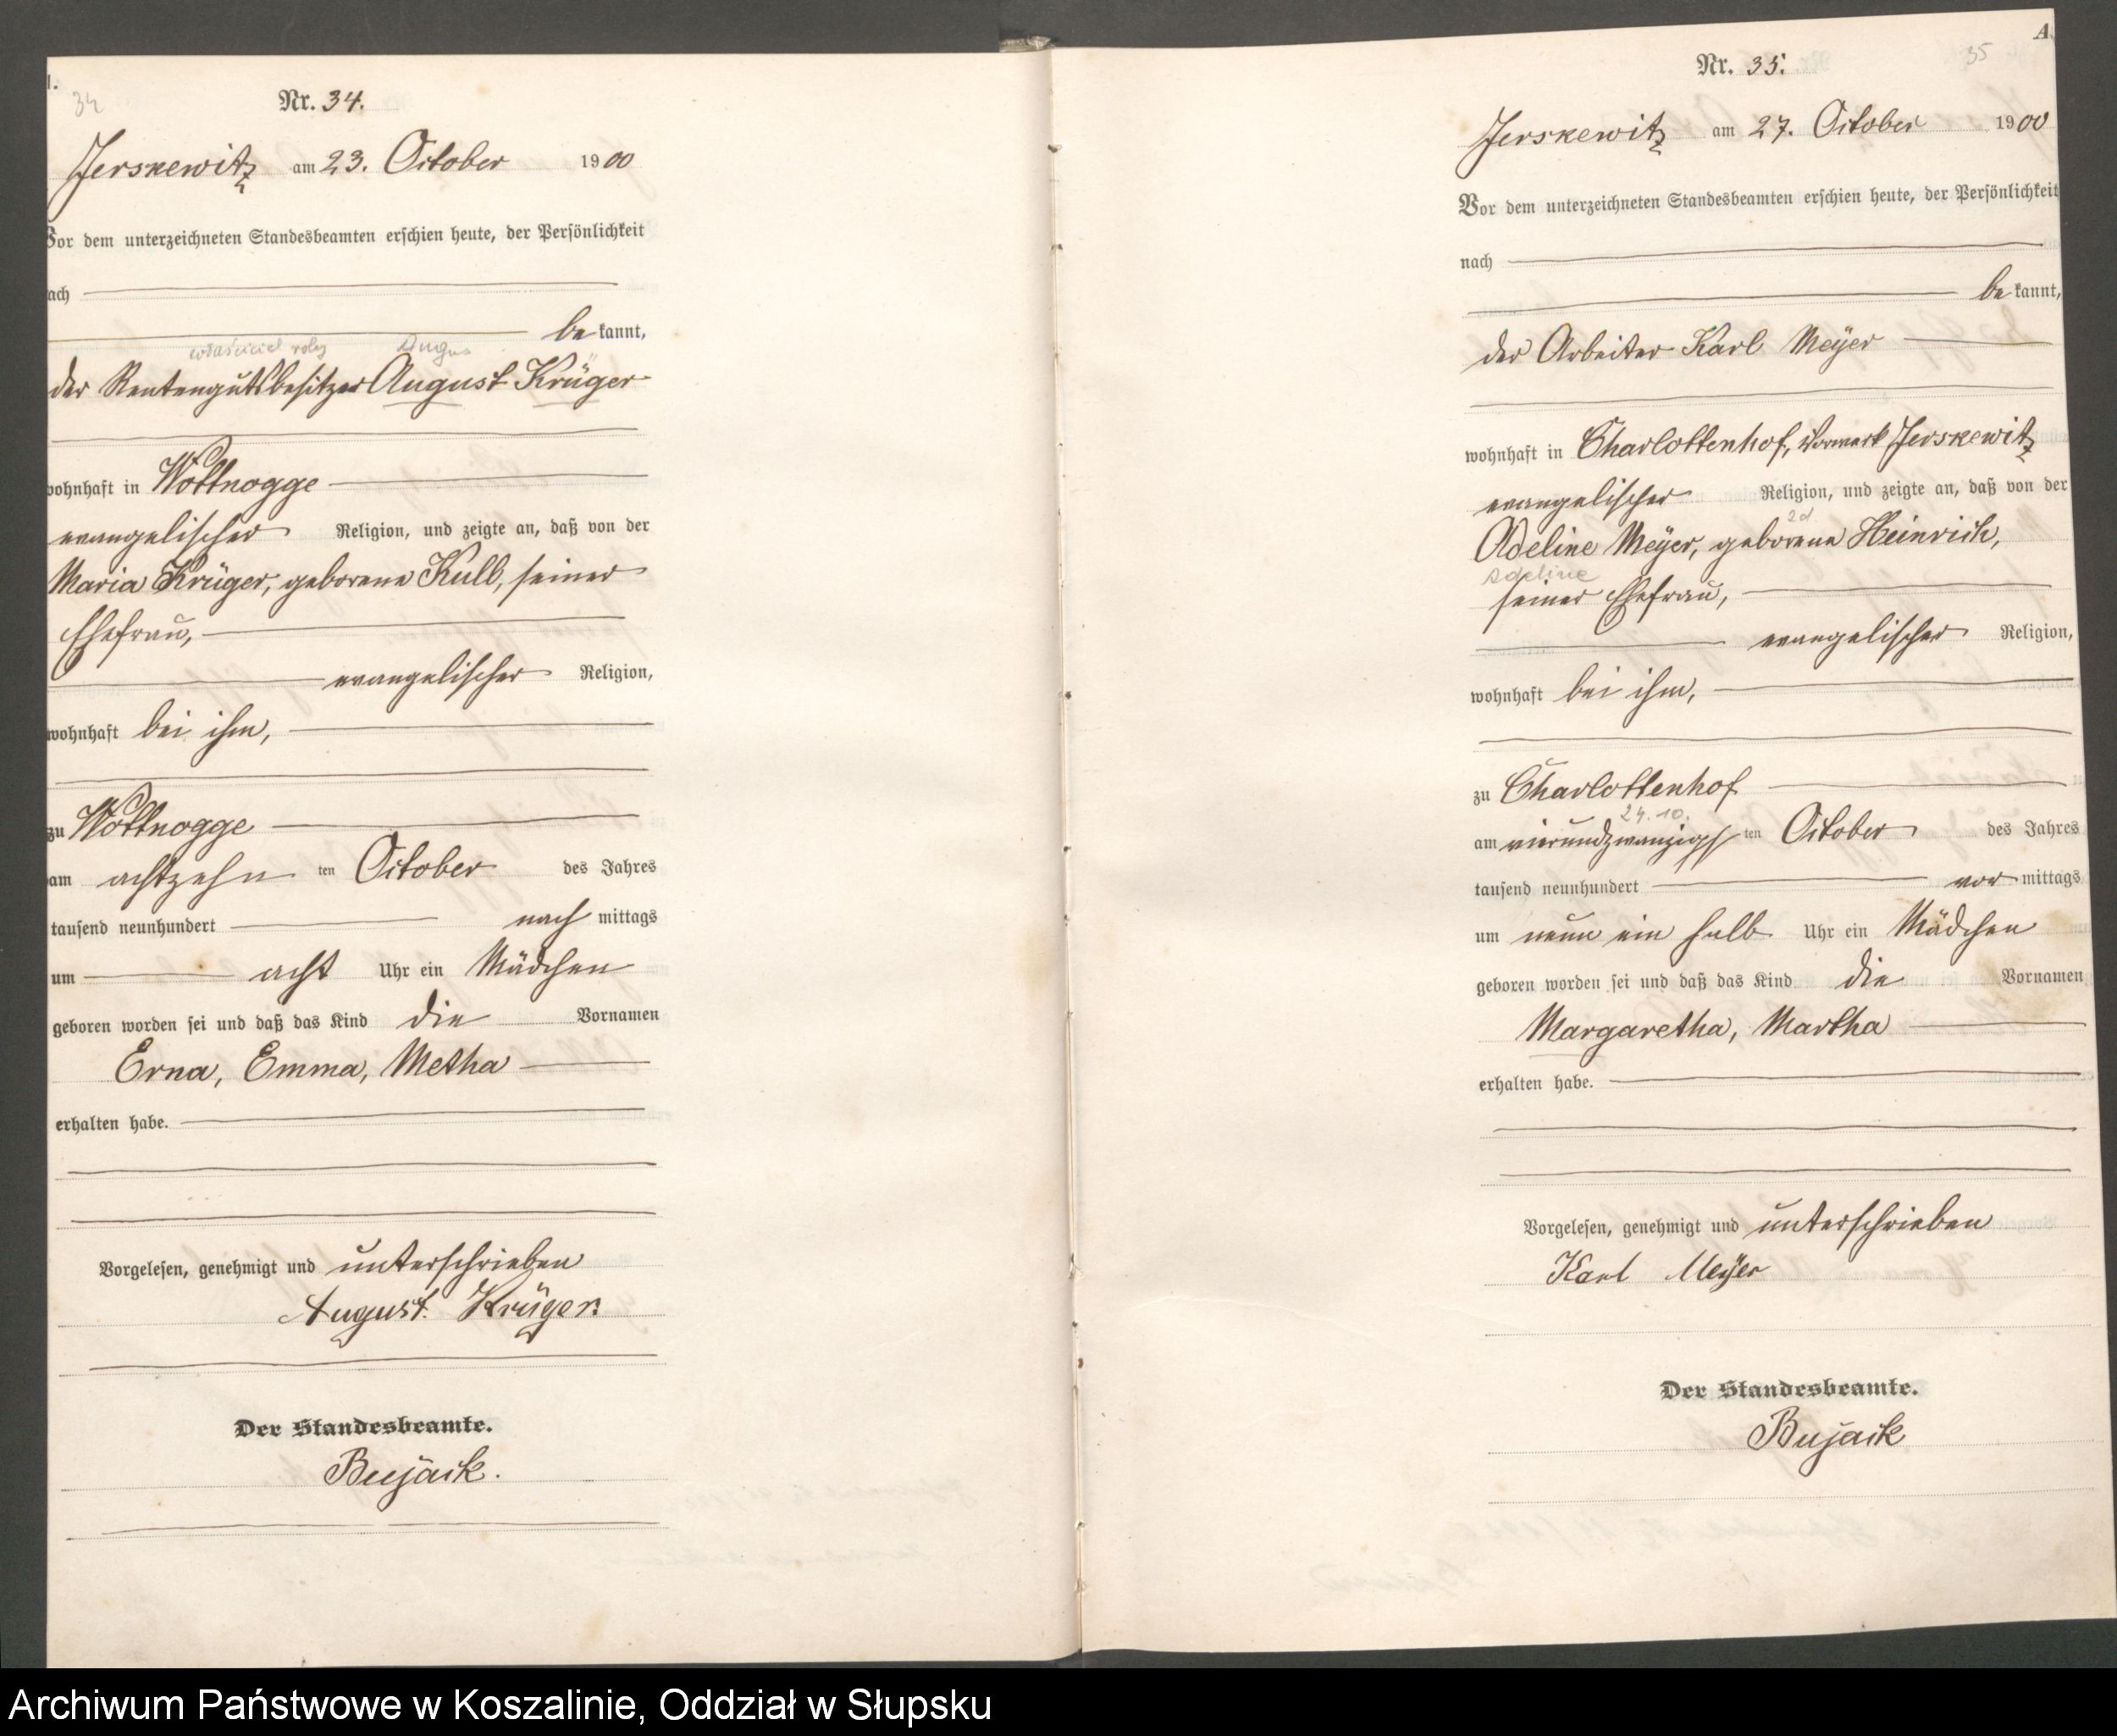 1.
34
Nr. 34.
Jerskewitz am 23. October 1900
Vor dem unterzeichneten Standesbeamten erschien heute, der Persönlichkeit
nach
be kannt,
właściciel roly Augus
der Rentengutsbesitzer August Krüger
wohnhaft in Wottnogge
evangelischer Religion, und zeigte an, daß von der
Maria Krüger, geborene Kull, seiner
Ehefrau,
evangelischer Religion,
wohnhaft bei ihm,
zu Wottnogge
am achtzehn ten October des Jahres
tausend neunhundert nach mittags
um acht Uhr ein Mädchen
geboren worden sei und daß das Kind die Vornamen
Erna, Emma, Metha
erhalten habe.
Vorgelesen, genehmigt und unterschrieben
August Krüger.
Der Standesbeamte.
Bujack.
A.
35
Nr. 35.
Jerskewitz am 27. October 1900
Vor dem unterzeichneten Standesbeamten erschien heute, der Persönlichkeit
nach
be kannt,
der Arbeiter Karl Meyer
wohnhaft in Charlottenhof, Vorwerk Jerskewitz
evangelischer Religion, und zeigte an, daß von der
Adeline Meyer, geborene Heinrich,
Adeline
seiner Ehefrau,
evangelischer Religion,
wohnhaft bei ihm,
zu Charlottenhof
24.10.
am vierundzwanzigs ten October des Jahres
tausend neunhundert vor mittags
um neun ein halb Uhr ein Mädchen
geboren worden sei und daß das Kind die Vornamen
Margaretha, Martha
erhalten habe.
Vorgelesen, genehmigt und unterschrieben
Karl Meyer
Der Standesbeamte.
Bujack
Archiwum Państwowe w Koszalinie, Oddział w Słupsku